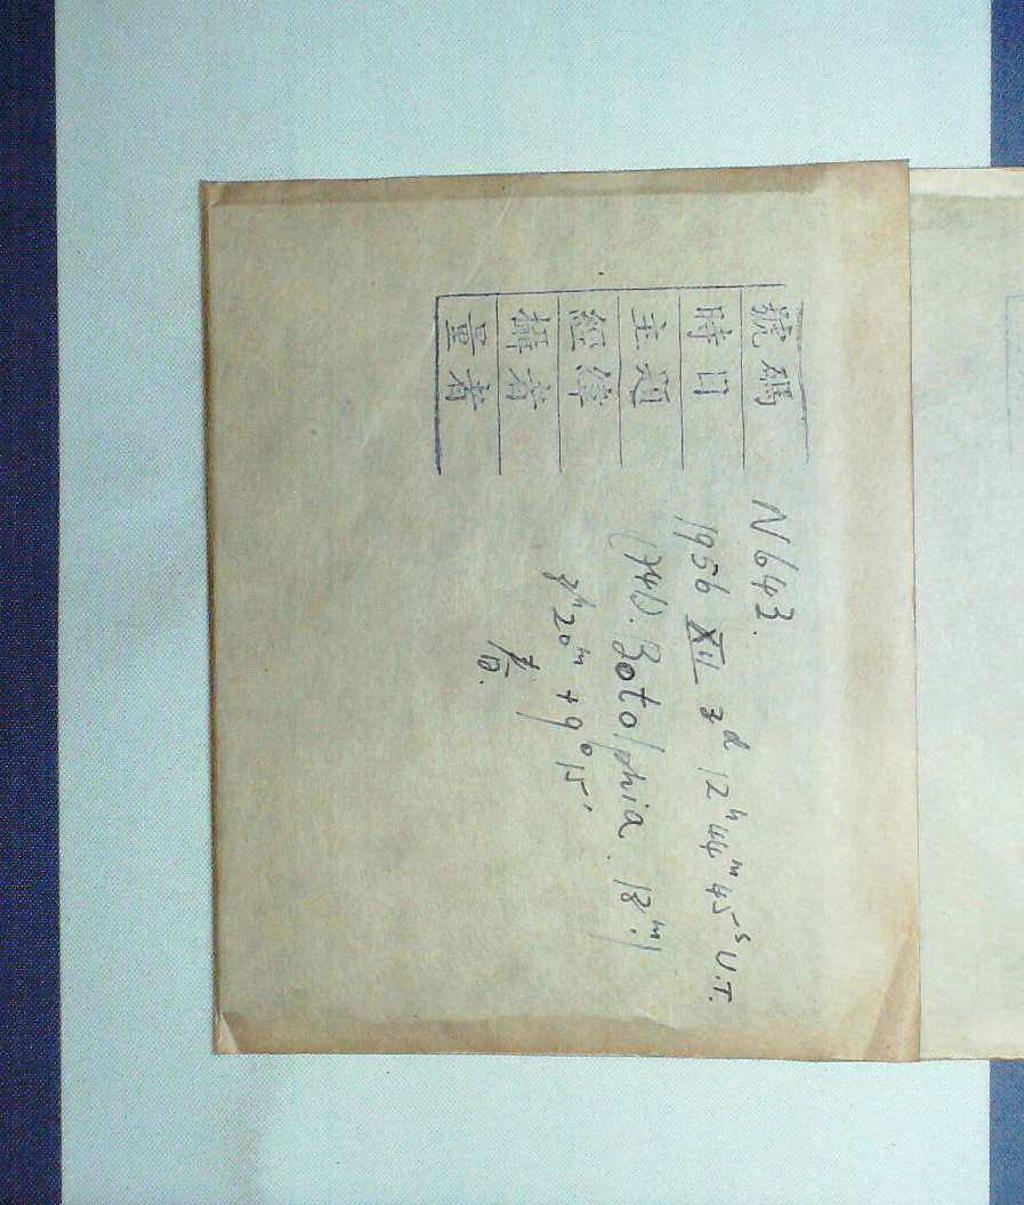 號碼 N643.
時日 1956 XII 3ᵈ 12ʰ 44ᵐ 45ˢ U.T.
主題 (740). Botolphia. 13ᵐ.1
經緯 3ʰ20ᵐ +9°15′
攝者
量者